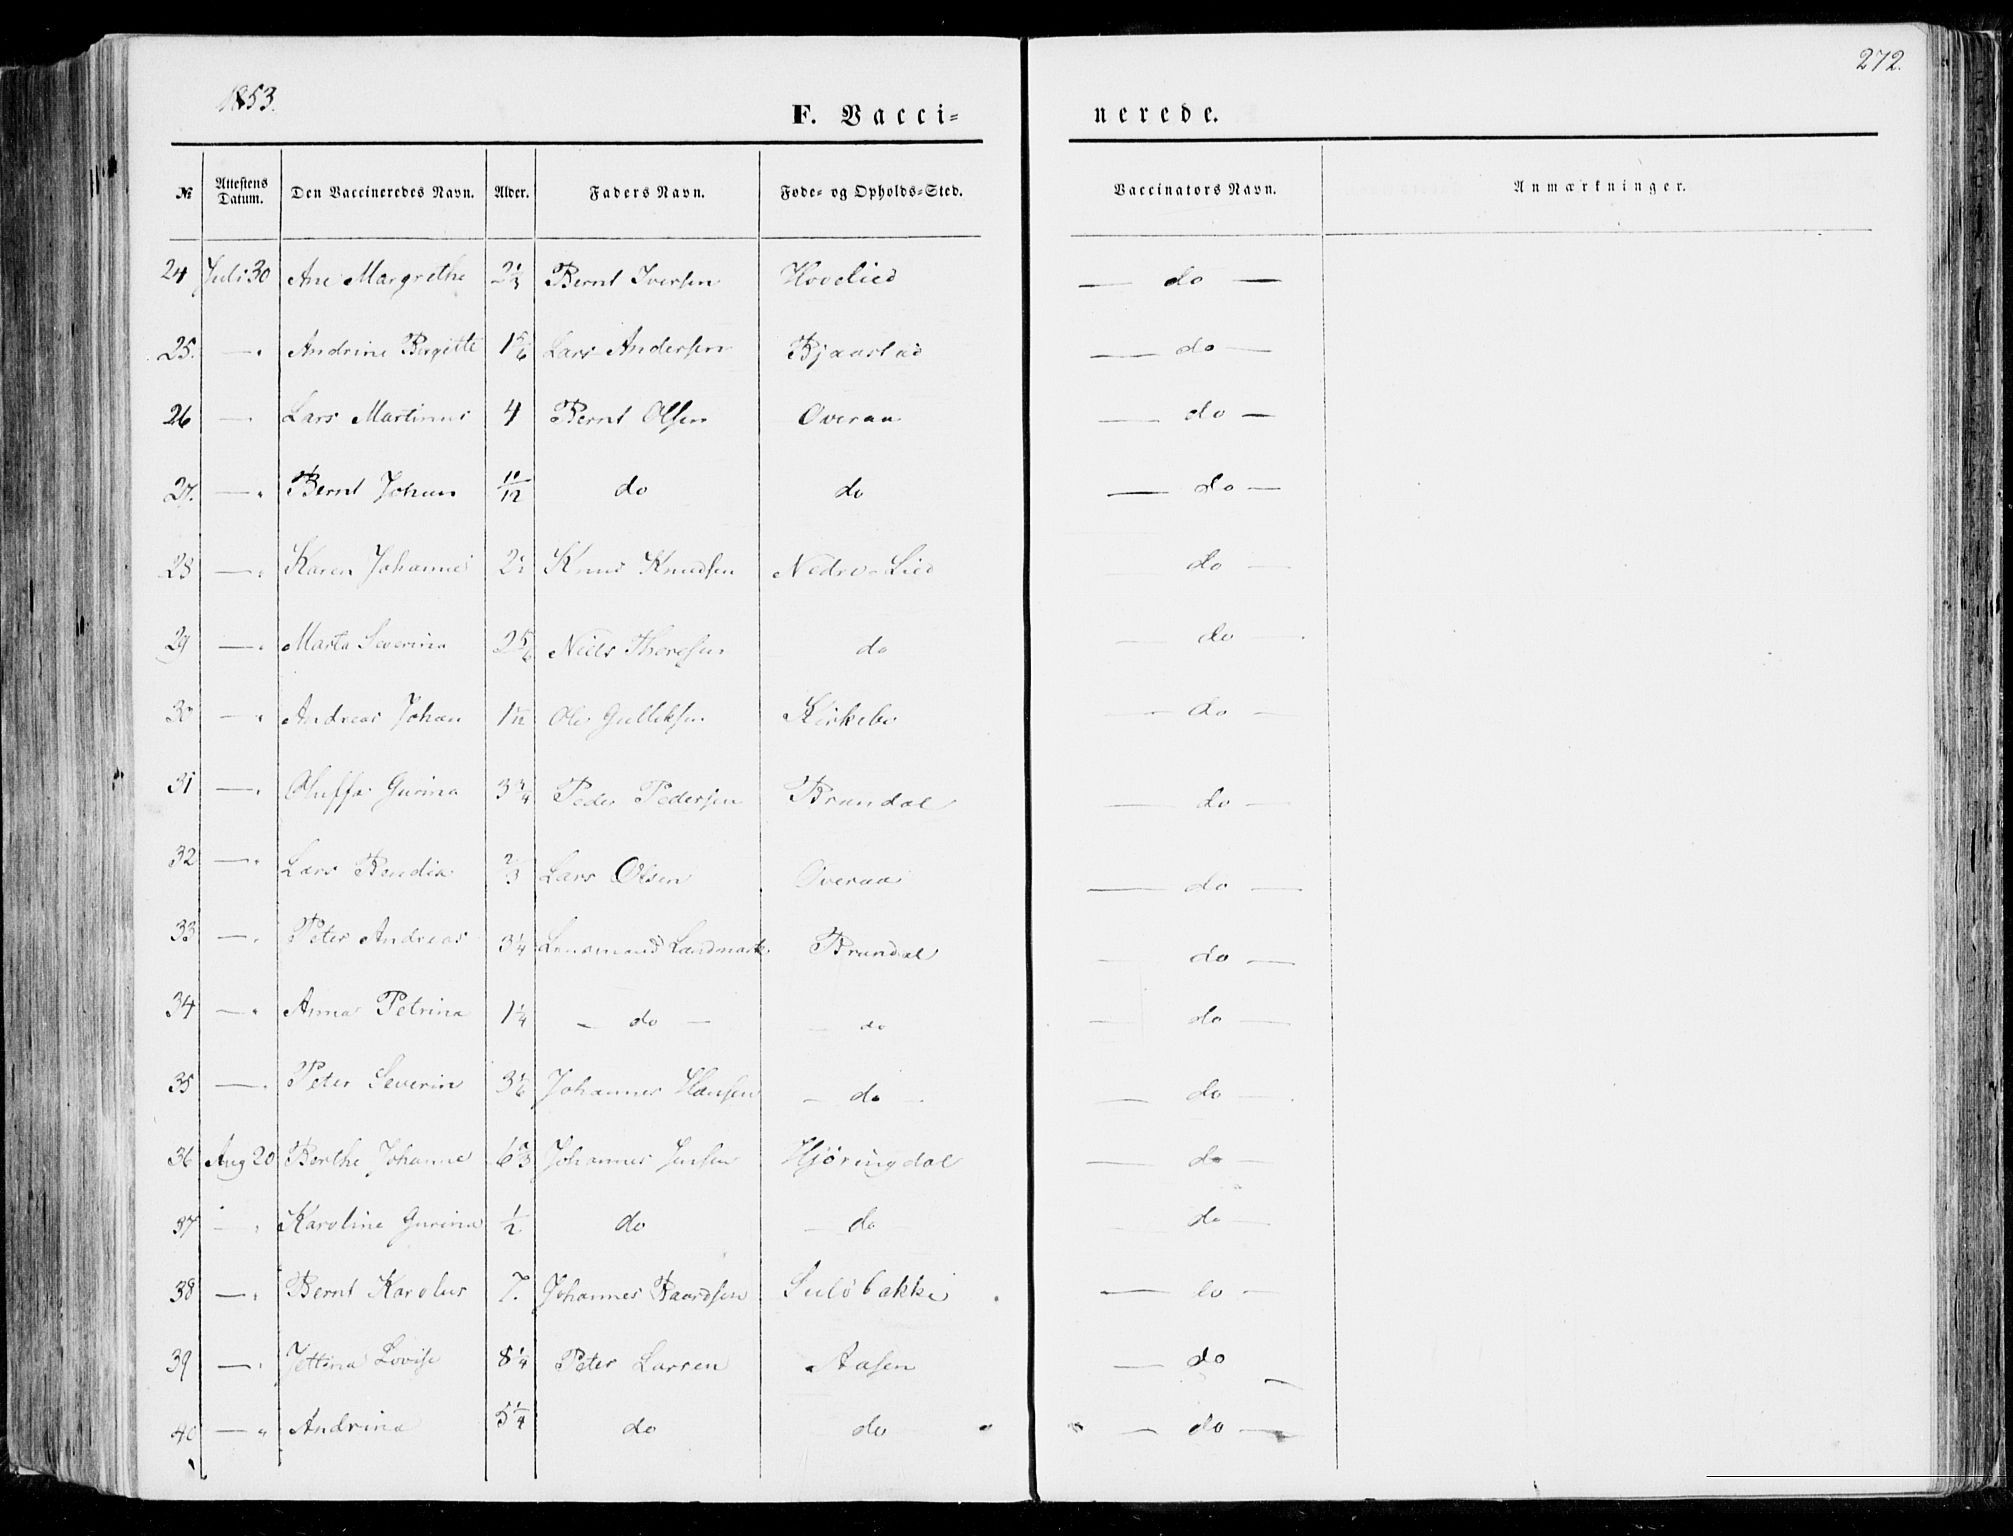 1853.
272.
F. Vacci= nerede.
№ Attestens Datum. Den Vaccineredes Navn. Alder. Faders Navn. Føde- og Opholds-Sted. Vaccinators Navn. Anmærkninger.
24 Juli 30 Ane Margrethe 2 1/3 Bernt Iversen Hovelied — do —
25. — " Andrine Bergitte 1 5/6 Lars Andersen Bjaastad — do —
26 — Lars Martinus 4 Bernt Olsen Overaa — do —
27. — " Bernt Johan 11/12 do do — do —
28 — " Karen Johanne Knud Knudsen Nedre-Lied — do —
29 — " Marta Severina 2 5/6 Niels do — do —
30 — " Andreas Johan Ole Gulliksen Kirkebø — do —
31 — " Oluffa Gurina 3 3/4 Peder Pedersen Brandal — do —
32 — " Lars 2/3 Lars Olsen Overaa — do —
33 — " Peter Andreas 3 1/4 Lensmand Landmark Brandal — do —
34 — " Anna Petrina 1 1/4 — do — — do — do —
35 — " Peter Severin 3 1/6 Johannes Hansen — do — — do —
36 Aug 20 Berthe Johanne 6 2/3 Johannes Jensen Hjøringdal — do —
37 — " Karoline Gurina 1/2 do — do — do —
38 — " Bernt Karolus 7. Johannes Baardsen Sulebakke — do —
39 — " Jettina Lovise 8 1/4 Peter Larsen Aasen — do
40 — " Andrina 5 1/4 do do — do —